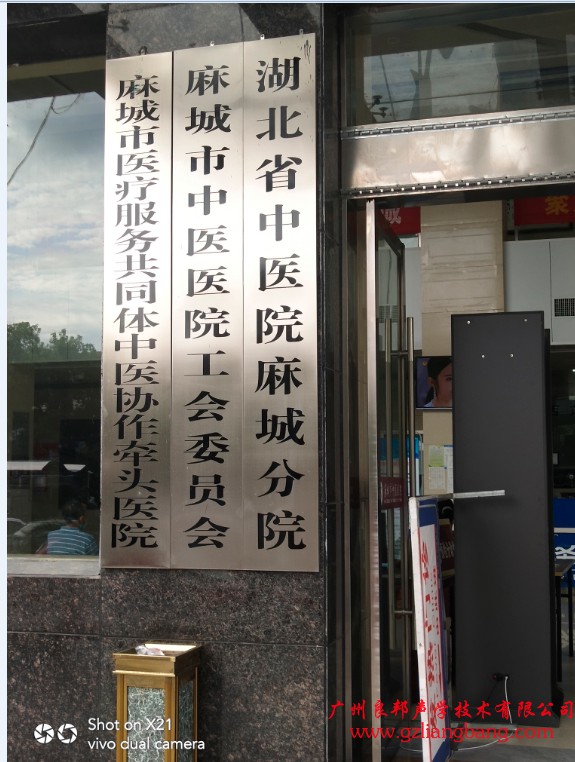 湖北省中医院麻城分院
麻城市中医医院工会委员会
麻城市医疗服务共同体中医协作牵头医院
诚
聚
Shot on X21
vivo dual camera
广州良邦声学技术有限公司
www.gzliangbang.com